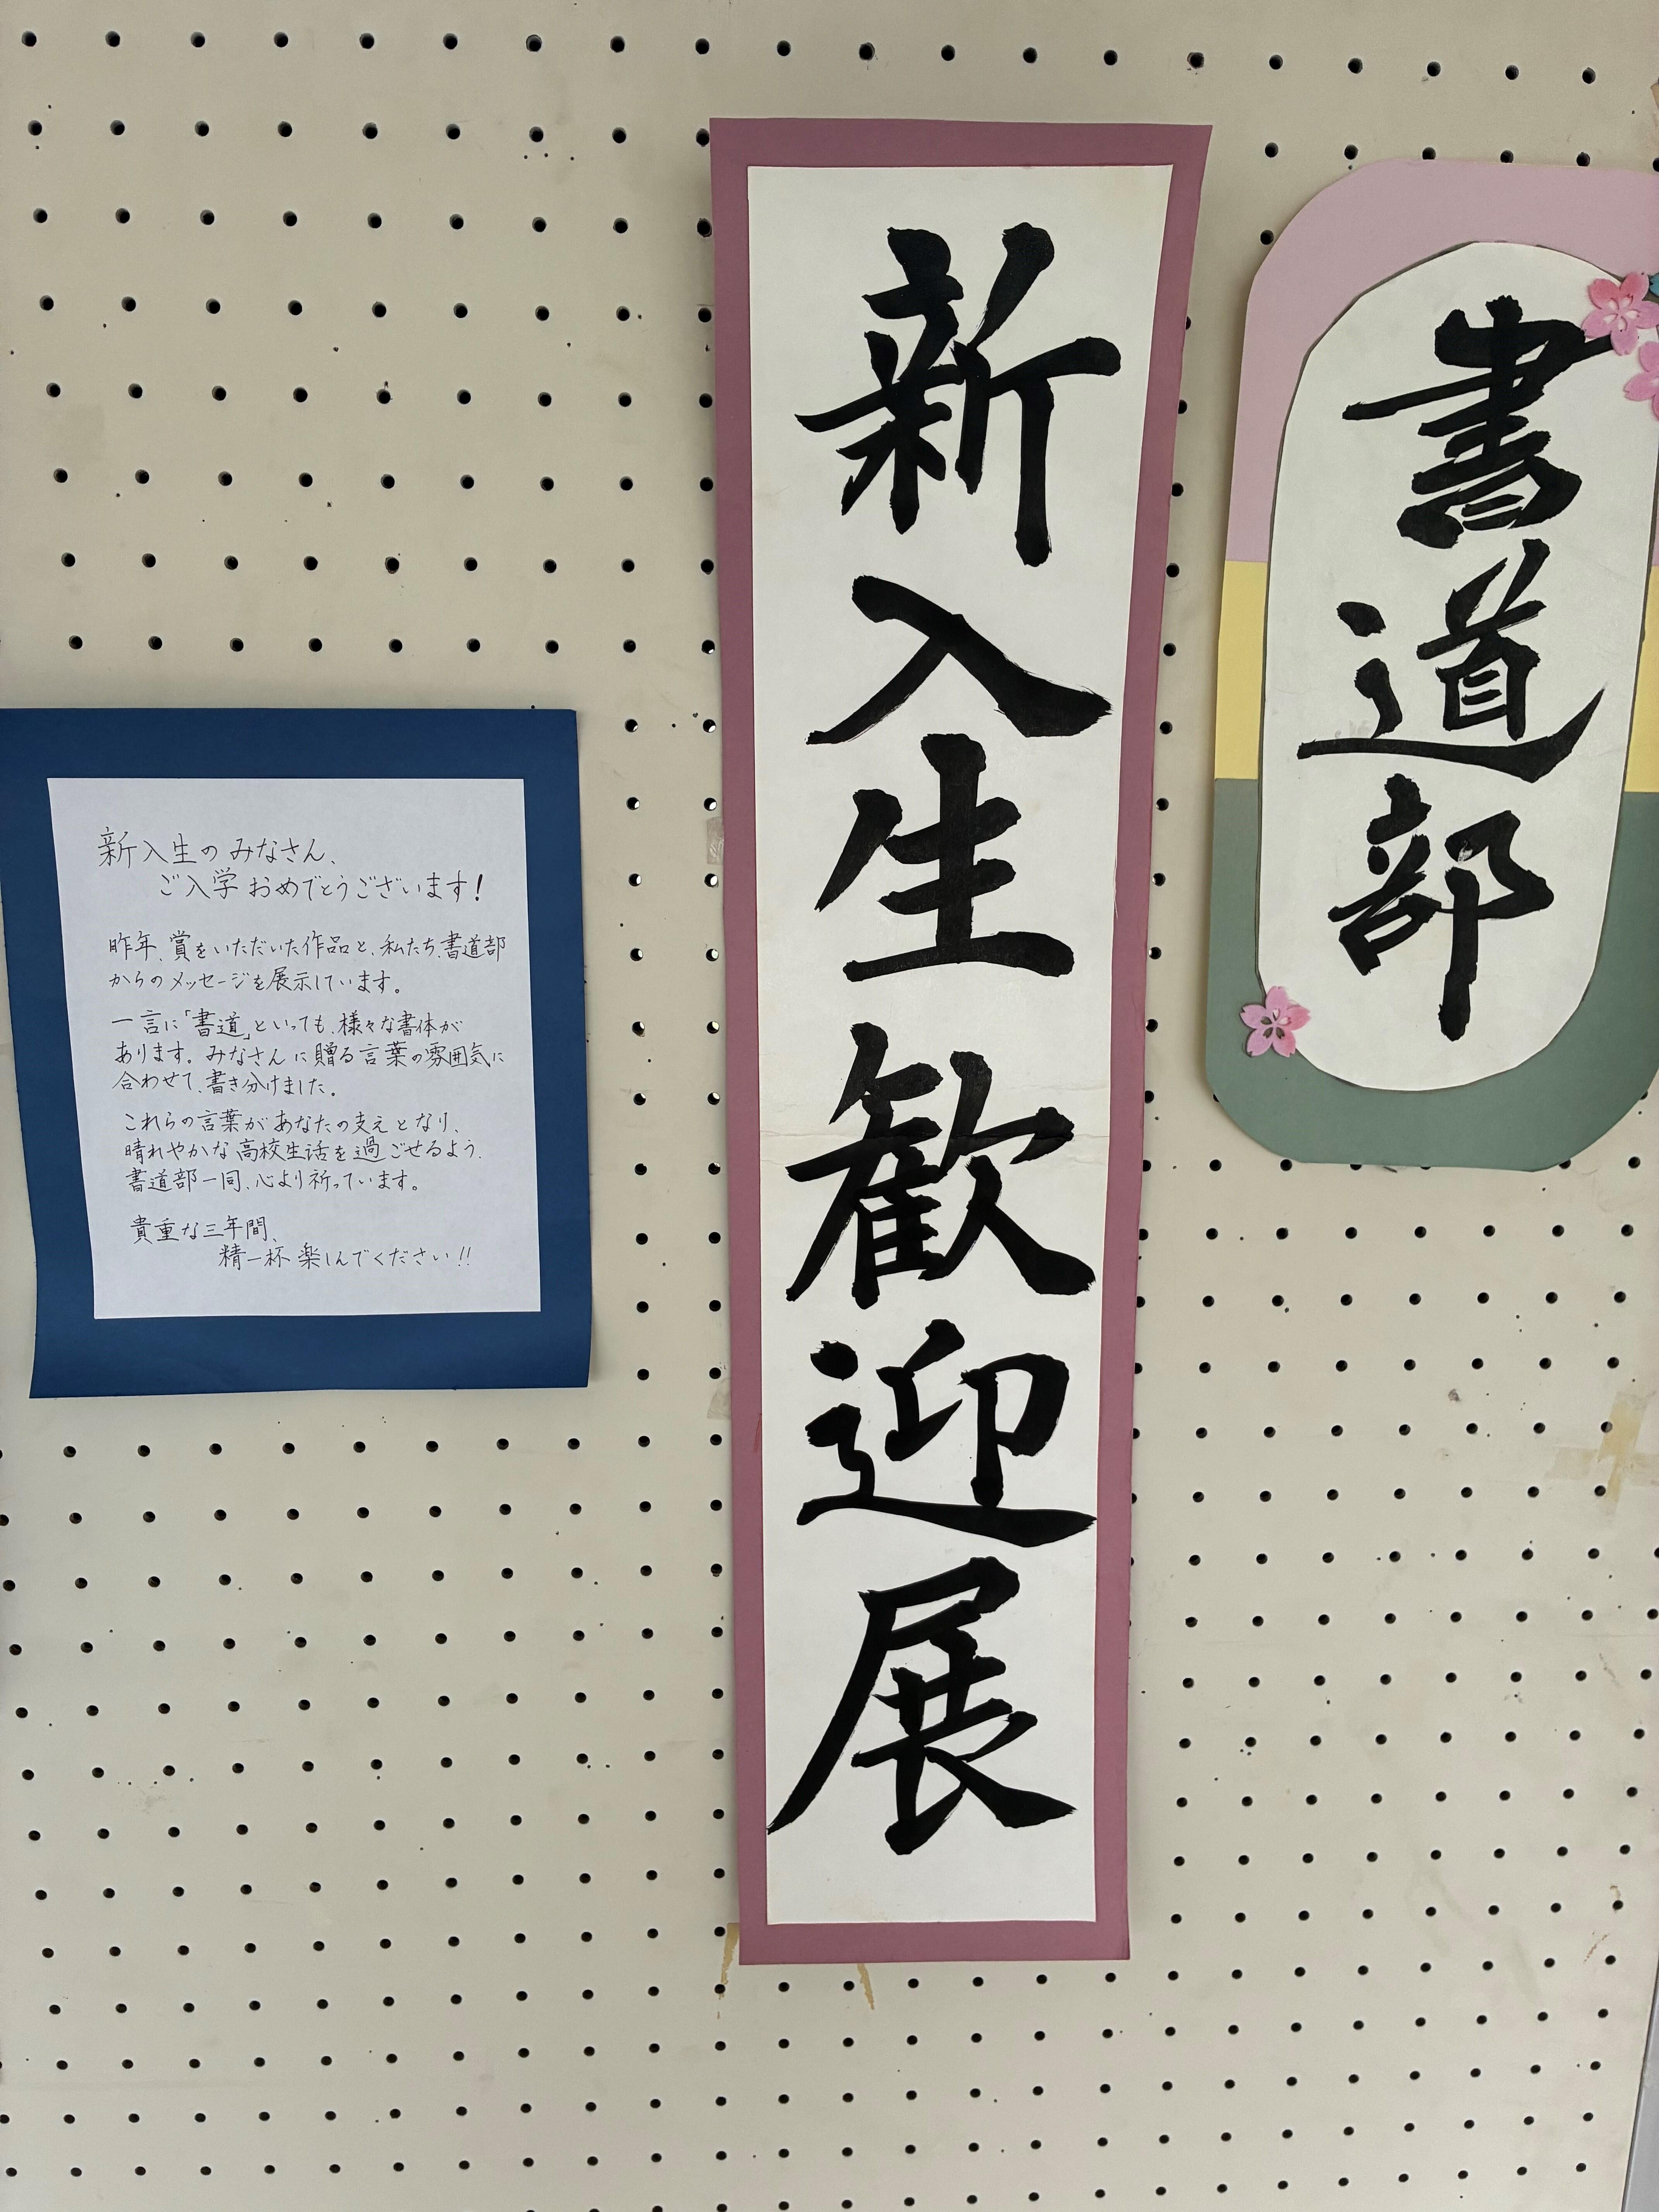 書道部
新入生歓迎展
新入生のみなさん、
ご入学おめでとうございます!
昨年、賞をいただいた作品と、私たち、書道部
からのメッセージを展示しています。
一言に「書道」といっても、様々な書体が
あります。みなさんに贈る言葉の雰囲気に
合わせて、書き分けました。
これらの言葉があなたの支えとなり、
晴れやかな高校生活を過ごせるよう、
書道部一同、心より祈っています。
貴重な三年間、
精一杯楽しんでください!!